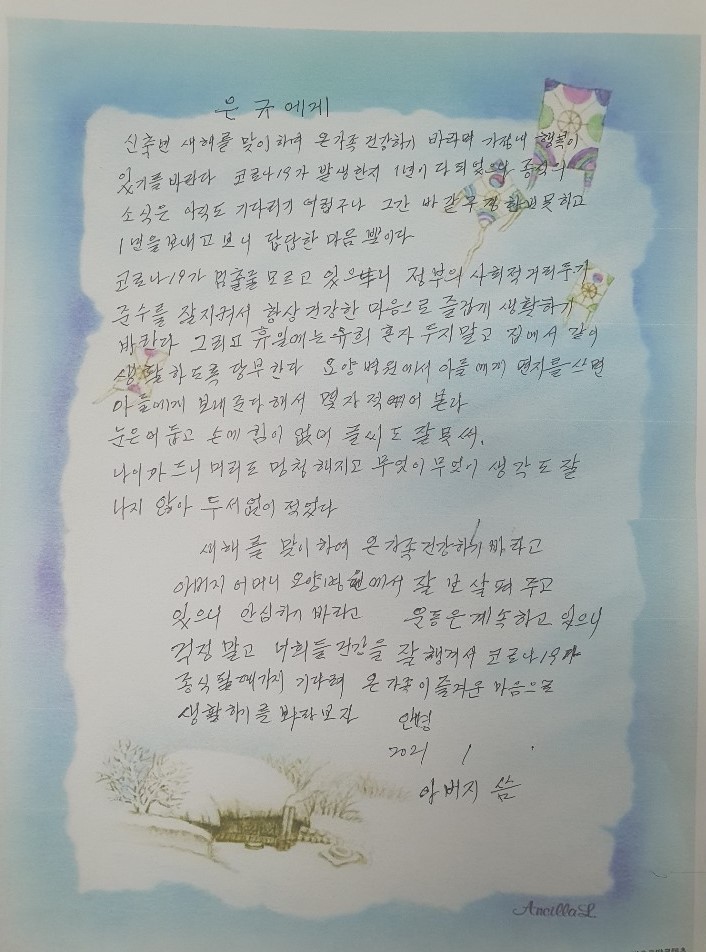 은규에게
신축년 새해를 맞이하여 온가족 건강하기 바라며 가정내 행복이
있기를 바란다 코로나19가 발생한지 1년이 다되었으나 종식의
소식은 아직도 기다리기 어렵구나 그간 바깥구경 한번 못하고
1년을 보내고 보니 답답한 마음 뿐이다
코로나19가 멈출줄 모르고 있으니 정부의 사회적거리두기
준수를 잘지켜서 항상 건강한 마음으로 즐겁게 생활하기
바란다 그리고 휴일에는 혼자 두지말고 집에서 같이
생활하도록 당부한다 요양병원에서 아들에게 편지를 쓰면
아들에게 보내준다해서 몇자 적어 본다
눈은 어둡고 손에 힘이 없어 글씨도 잘못써.
나이가 드니 머리도 멍청해지고 무엇이 무엇이 생각도 잘
나지 않아 두서없이 적었다
새해를 맞이하여 온가족건강하기 바라고
아버지 어머니 요양병원에서 잘 보살펴 주고
있으니 안심하기 바라고 운동은 계속하고 있으니
걱정말고 너희들 건강을 잘 챙겨서 코로나19가
종식될때까지 기다려 온가족이 즐거운 마음으로
생활하기를 바란다 안녕
2021 1 .
아버지 씀
Ancilla L